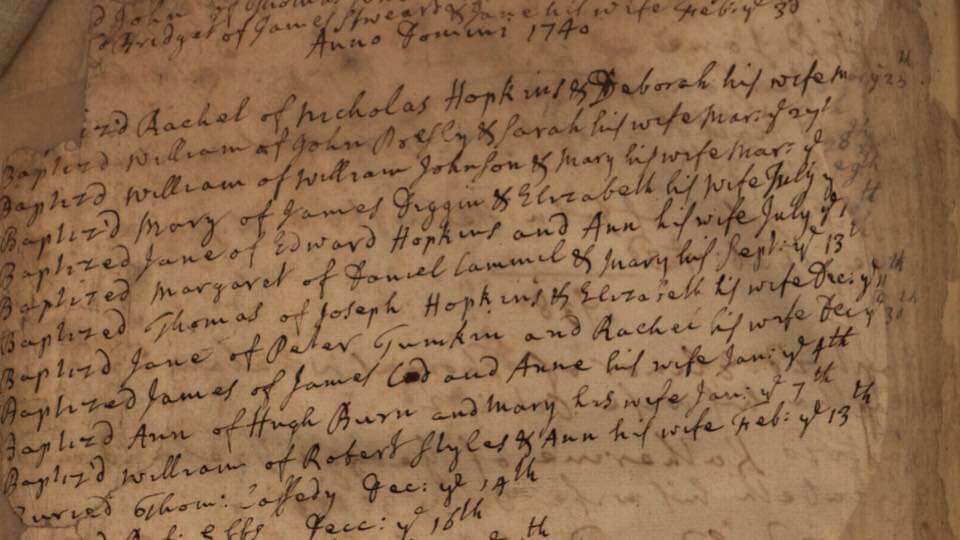 John
Bridget of James Steward & Jane his wife Feb: ye 3d
Anno Domini 1740
Rachel of Nicholas Hopkins & Deborah his wife Mary 25th
Baptiz'd William of John Presly & Sarah his wife Mar: ye
Baptiz'd William of William Johnson & Mary his wife Mar: ye
Baptiz'd Mary of James Diggin & Elizabeth his wife July ye
Baptized Jane of Edward Hopkins and Ann his wife July ye
Baptized Margaret of Daniel Cammil & Mary his Sept: ye 13th
Baptized Thomas of Joseph Hopkins & Elizabeth his wife Dec: ye
Baptizd Jane of Peter Tumkin and Rachel his wife Dec ye 30th
Baptized James of James and Anne his wife Jan: ye 4th
Baptiz'd Ann of Hugh Burn and Mary his wife Jan: ye 7th
Baptiz'd William of Robert Styles & Ann his wife Feb: ye 13th
Buried Thom: Caffedy Dec: ye 14th
Decc: ye 16th
th